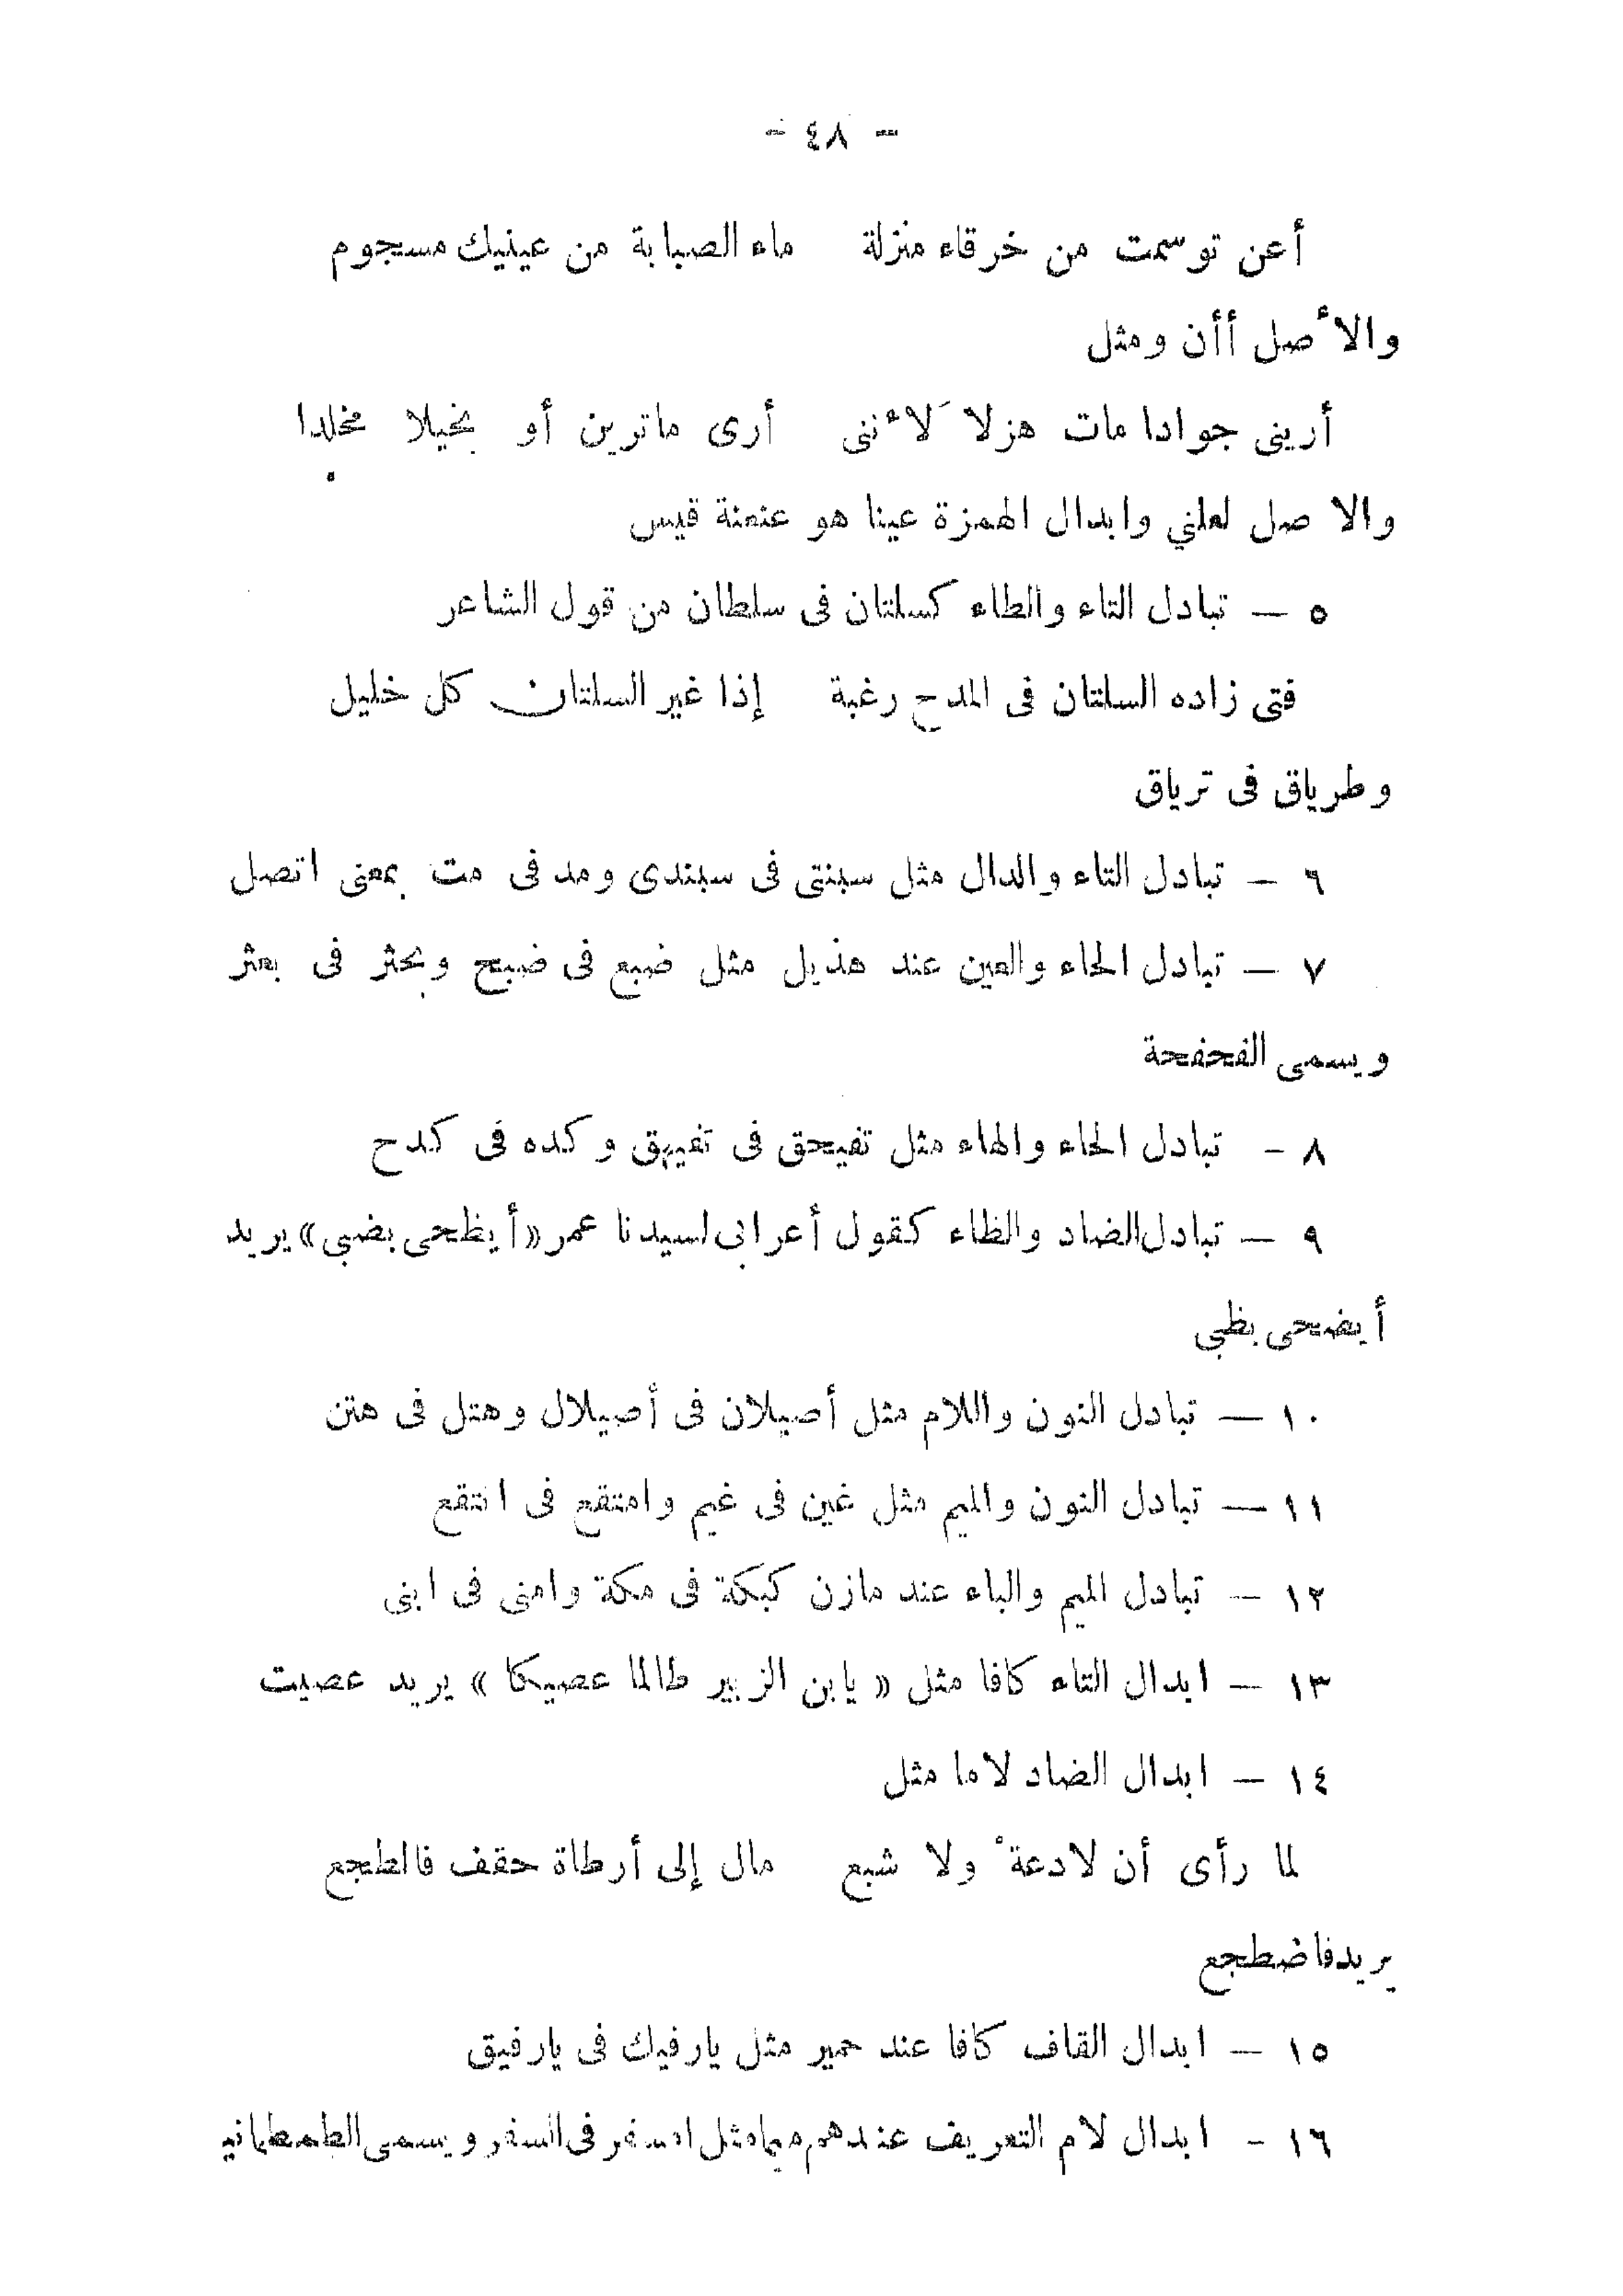 - ٤٨ -
أعن توسمت من خرقاء منزلة ماء الصبابة من عينيك مسجوم
والأصل أأن ومثل
أرينى جوادا مات هزلا لَأننى أرى ماترين أو بخيلا مخلدا
والاصل لعلني وابدال الهمزة عينا هو عنعنة قيس
٥ — تبادل التاء والطاء كسلتان فى سلطان من قول الشاعر
فتى زاده السلتان فى المدح رغبة إذا غير السلتان كل خليل
وطرياق فى ترياق
٦ — تبادل التاء والدال مثل سبنتى فى سبندى ومد فى مت بمعنى اتصل
٧ — تبادل الحاء والعين عند هذيل مثل ضبع فى ضبح وبحثر فى بعثر
ويسمى الفحفحة
٨ - تبادل الحاء والهاء مثل تفيحق فى تفيهق وكده فى كدح
٩ — تبادل الضاد والظاء كقول أعرابى لسيدنا عمر «أيظحى بضبى» يريد
أيضحى بظبى
١٠ — تبادل النون واللام مثل أصيلان فى أصيلال وهتل فى هتن
١١ — تبادل النون والميم مثل غين فى غيم وامتقع فى انتقع
١٢ — تبادل الميم والباء عند مازن كبكة فى مكة وامنى فى ابنى
١٣ — ابدال التاء كافا مثل « يابن الزبير طالما عصيكا » يريد عصيت
١٤ — ابدال الضاد لاما مثل
لما رأى أن لادعهْ ولا شبع مال إلى أرطاة حقف فالطجع
يريد فاضطجع
١٥ — ابدال القاف كافا عند حمير مثل يارفيك فى يارفيق
١٦ - ابدال لام التعريف عندهم ميما مثل امسفر فى السفر ويسمى الطمطمانيه